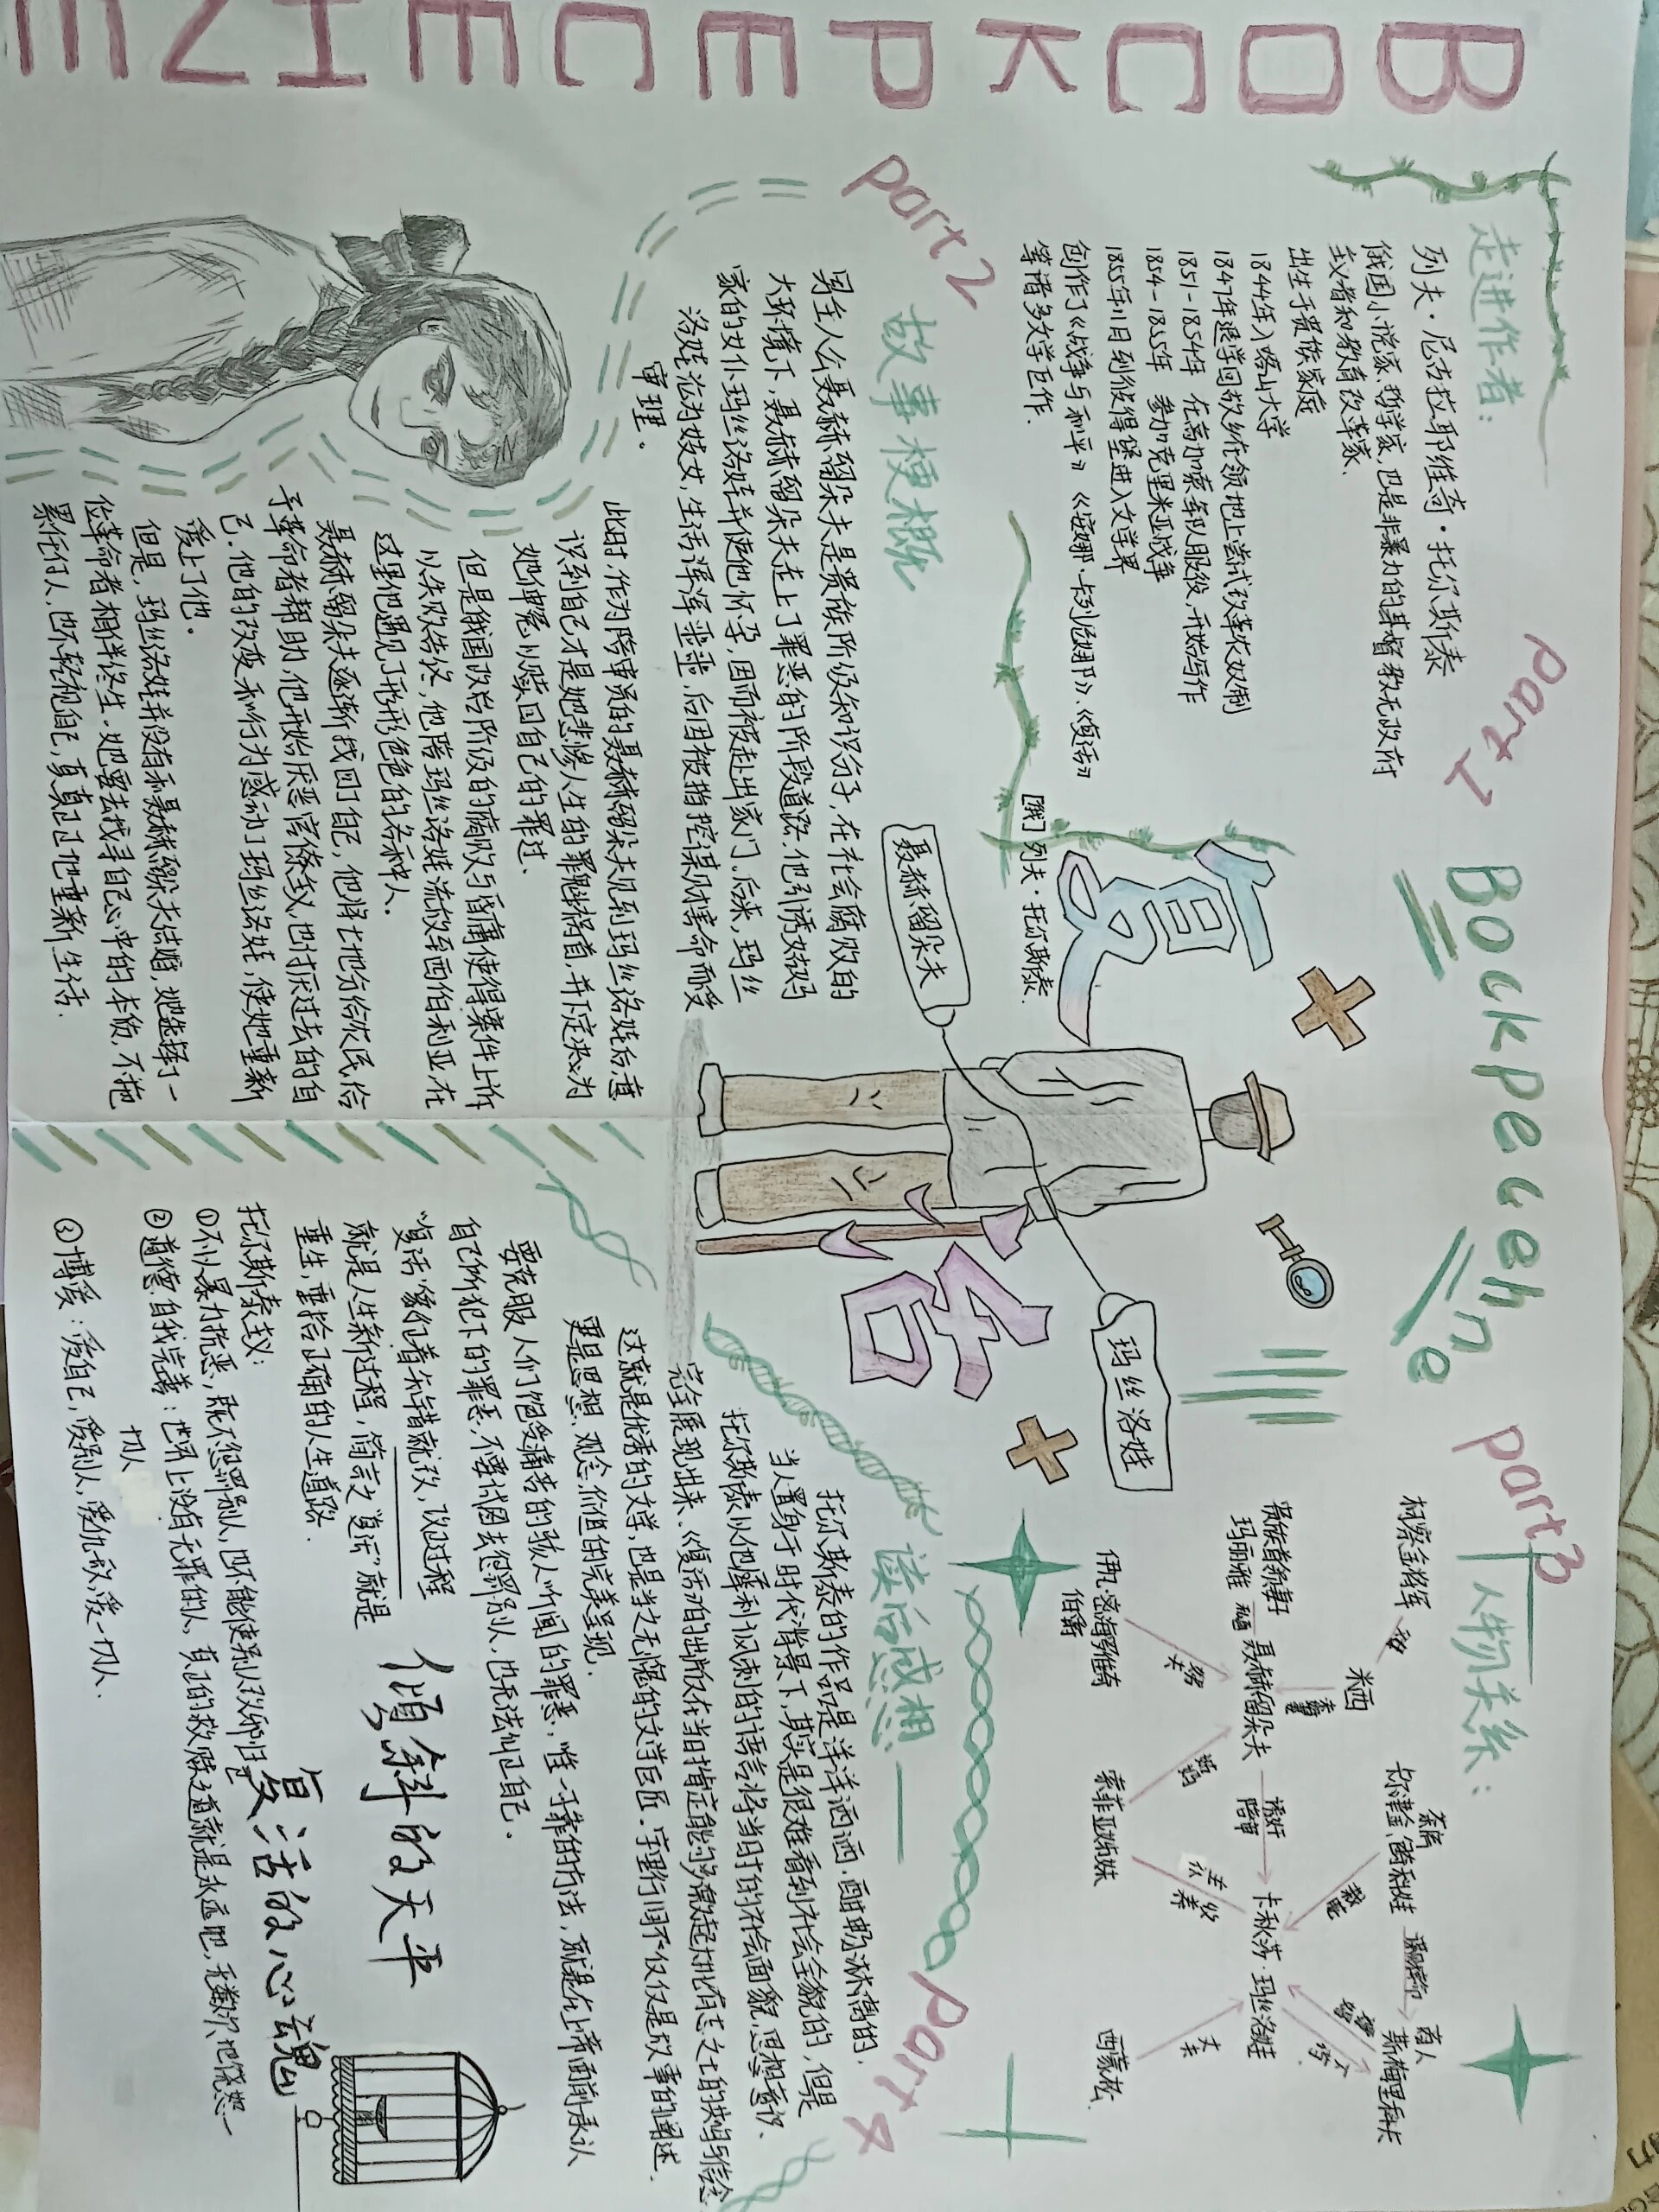 ВОСКРЕСЕНИЕ
part 1
Воскресение
走进作者：
列夫·尼古拉耶维奇·托尔斯泰
俄国小说家、哲学家，也是非暴力的基督教无政府
主义者和教育改革家、
出生于贵族家庭
1844年入喀山大学
1847年退学回故乡在领地上尝试改革农奴制
1851-1854年 在高加索军队服役，开始写作
1854-1855年 参加克里米亚战争
1855年11月到彼得堡进入文学界
创作了《战争与和平》《安娜·卡列尼娜》、《复活》
等诸多文学巨作.
复
[俄] 列夫·托尔斯泰.
活
聂赫留朵夫
玛丝洛娃
part 2
故事梗概
男主人公聂赫留朵夫是贵族阶级知识分子，在社会腐败的
大环境下，聂赫留朵夫走上了罪恶的阶段道路.他引诱姑妈
家的女仆玛丝洛娃并使他怀孕，因而被赶出家门，后来，玛丝
洛娃沦为妓女，生活浑浑噩噩，后因被指控谋财害命而受
审理.
此时，作为陪审员的聂赫留朵夫见到玛丝洛娃后意
识到自己才是她悲惨人生的罪魁祸首，并下定决心为
她伸冤以赎回自己的罪过.
但是俄国政治阶级的腐败与昏庸使得案件上诉
以失败告终，他陪玛丝洛娃流放到西伯利亚在
这里他遇见了形形色色的各种人.
聂赫留朵夫逐渐找回了自己，他将土地分给农民，给
予革命者帮助，他开始厌恶官僚主义，也讨厌过去的自
己.他的改变和行为感动了玛丝洛娃，使她重新
爱上了他.
但是，玛丝洛娃并没有和聂赫留朵夫结婚，她选择了一
位革命者相伴终生.她要去找寻自己心中的本质，不拖
累任何人，也不轻视自己，真真正正地重新生活.
part3
人物关系：
柯察金将军
米西
贵族首领妻子
玛丽雅
聂赫留朵夫
伊凡·密海罗维奇
伯爵
姑妈
索菲亚姊妹
诱奸
陪审
卡秋莎·玛丝洛娃
商人
斯梅里科夫
西蒙松
part 4
读后感想——
托尔斯泰的作品是洋洋洒洒.酣畅淋漓的，
当人置身于时代背景下，其实是很难看到社会全貌的，但是
托尔斯泰以他犀利讽刺的语言将当时的社会面貌，思想意识、
完全展现出来.《复活》的出版在当时肯定能够激起抗有志之士的共鸣与信念
这就是优秀的文学，也是当之无愧的文学巨匠.字里行间不仅仅是故事的阐述，
更是思想、观念，价值的完美呈现.
要克服人们饱受痛苦的骇人听闻的罪恶，唯一可靠的方法，就是在上帝面前承认
自己所犯下的罪恶，不要试图去惩罚别人，也无法纠正自己.
“复活”像极着知错就改，改过程
就是人生新过程，简言之“复活”就是
重生，重拾正确的人生道路.
托尔斯泰主义：
①不以暴力抗恶，既不惩罚别人，也不能使别人改邪归正
②道德自我完善：世界上没有无罪的人，真正的救赎之道就是永远吧，无数次地饶恕一
切人
③博爱：爱自己，爱别人，爱仇敌，爱一切人.
倾斜的天平
复活的心魂